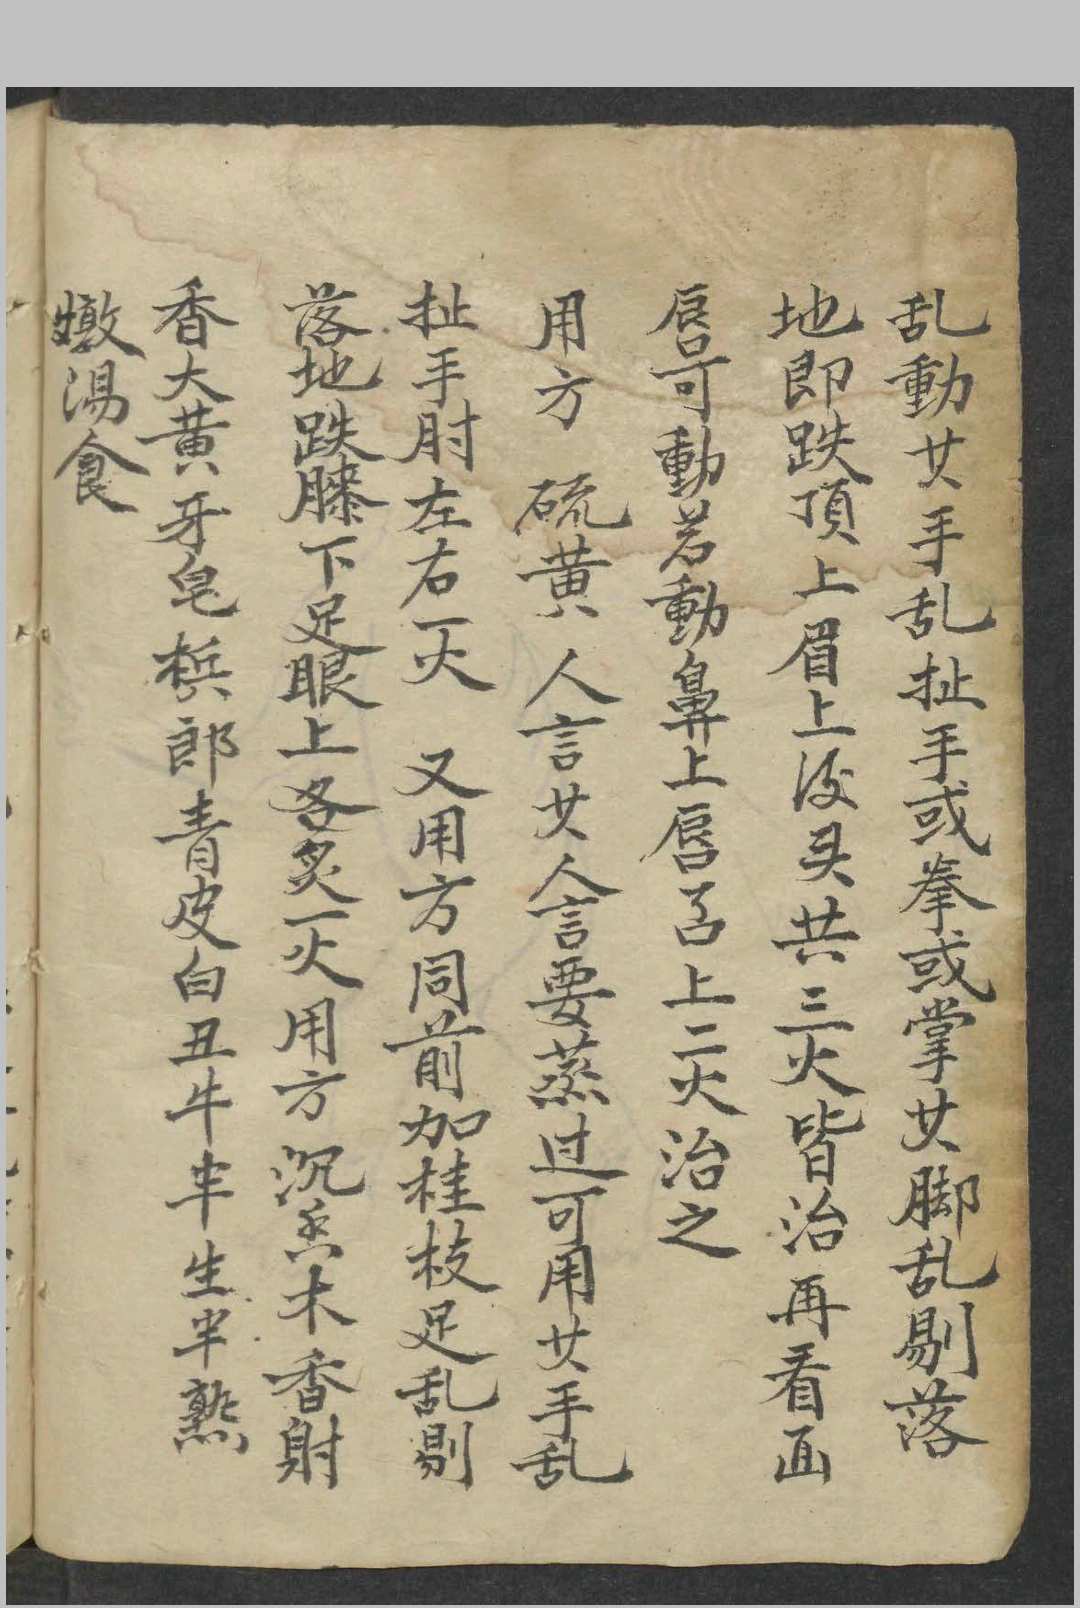 乱動女手乱扯手或拳或掌女脚乱剔落
地即跌頂上眉上後头共三火皆治再看面
唇可動若動鼻上唇舌上二火治之
用方 硫黄 人言女人言要蒸过可用女手乱
扯手肘左右一火 又用方同前加桂枝足乱剔
落地跌膝下足眼上各炙一火用方沉香木香射
香大黄牙皂梹郎青皮白丑牛半生半熟
嫩湯食